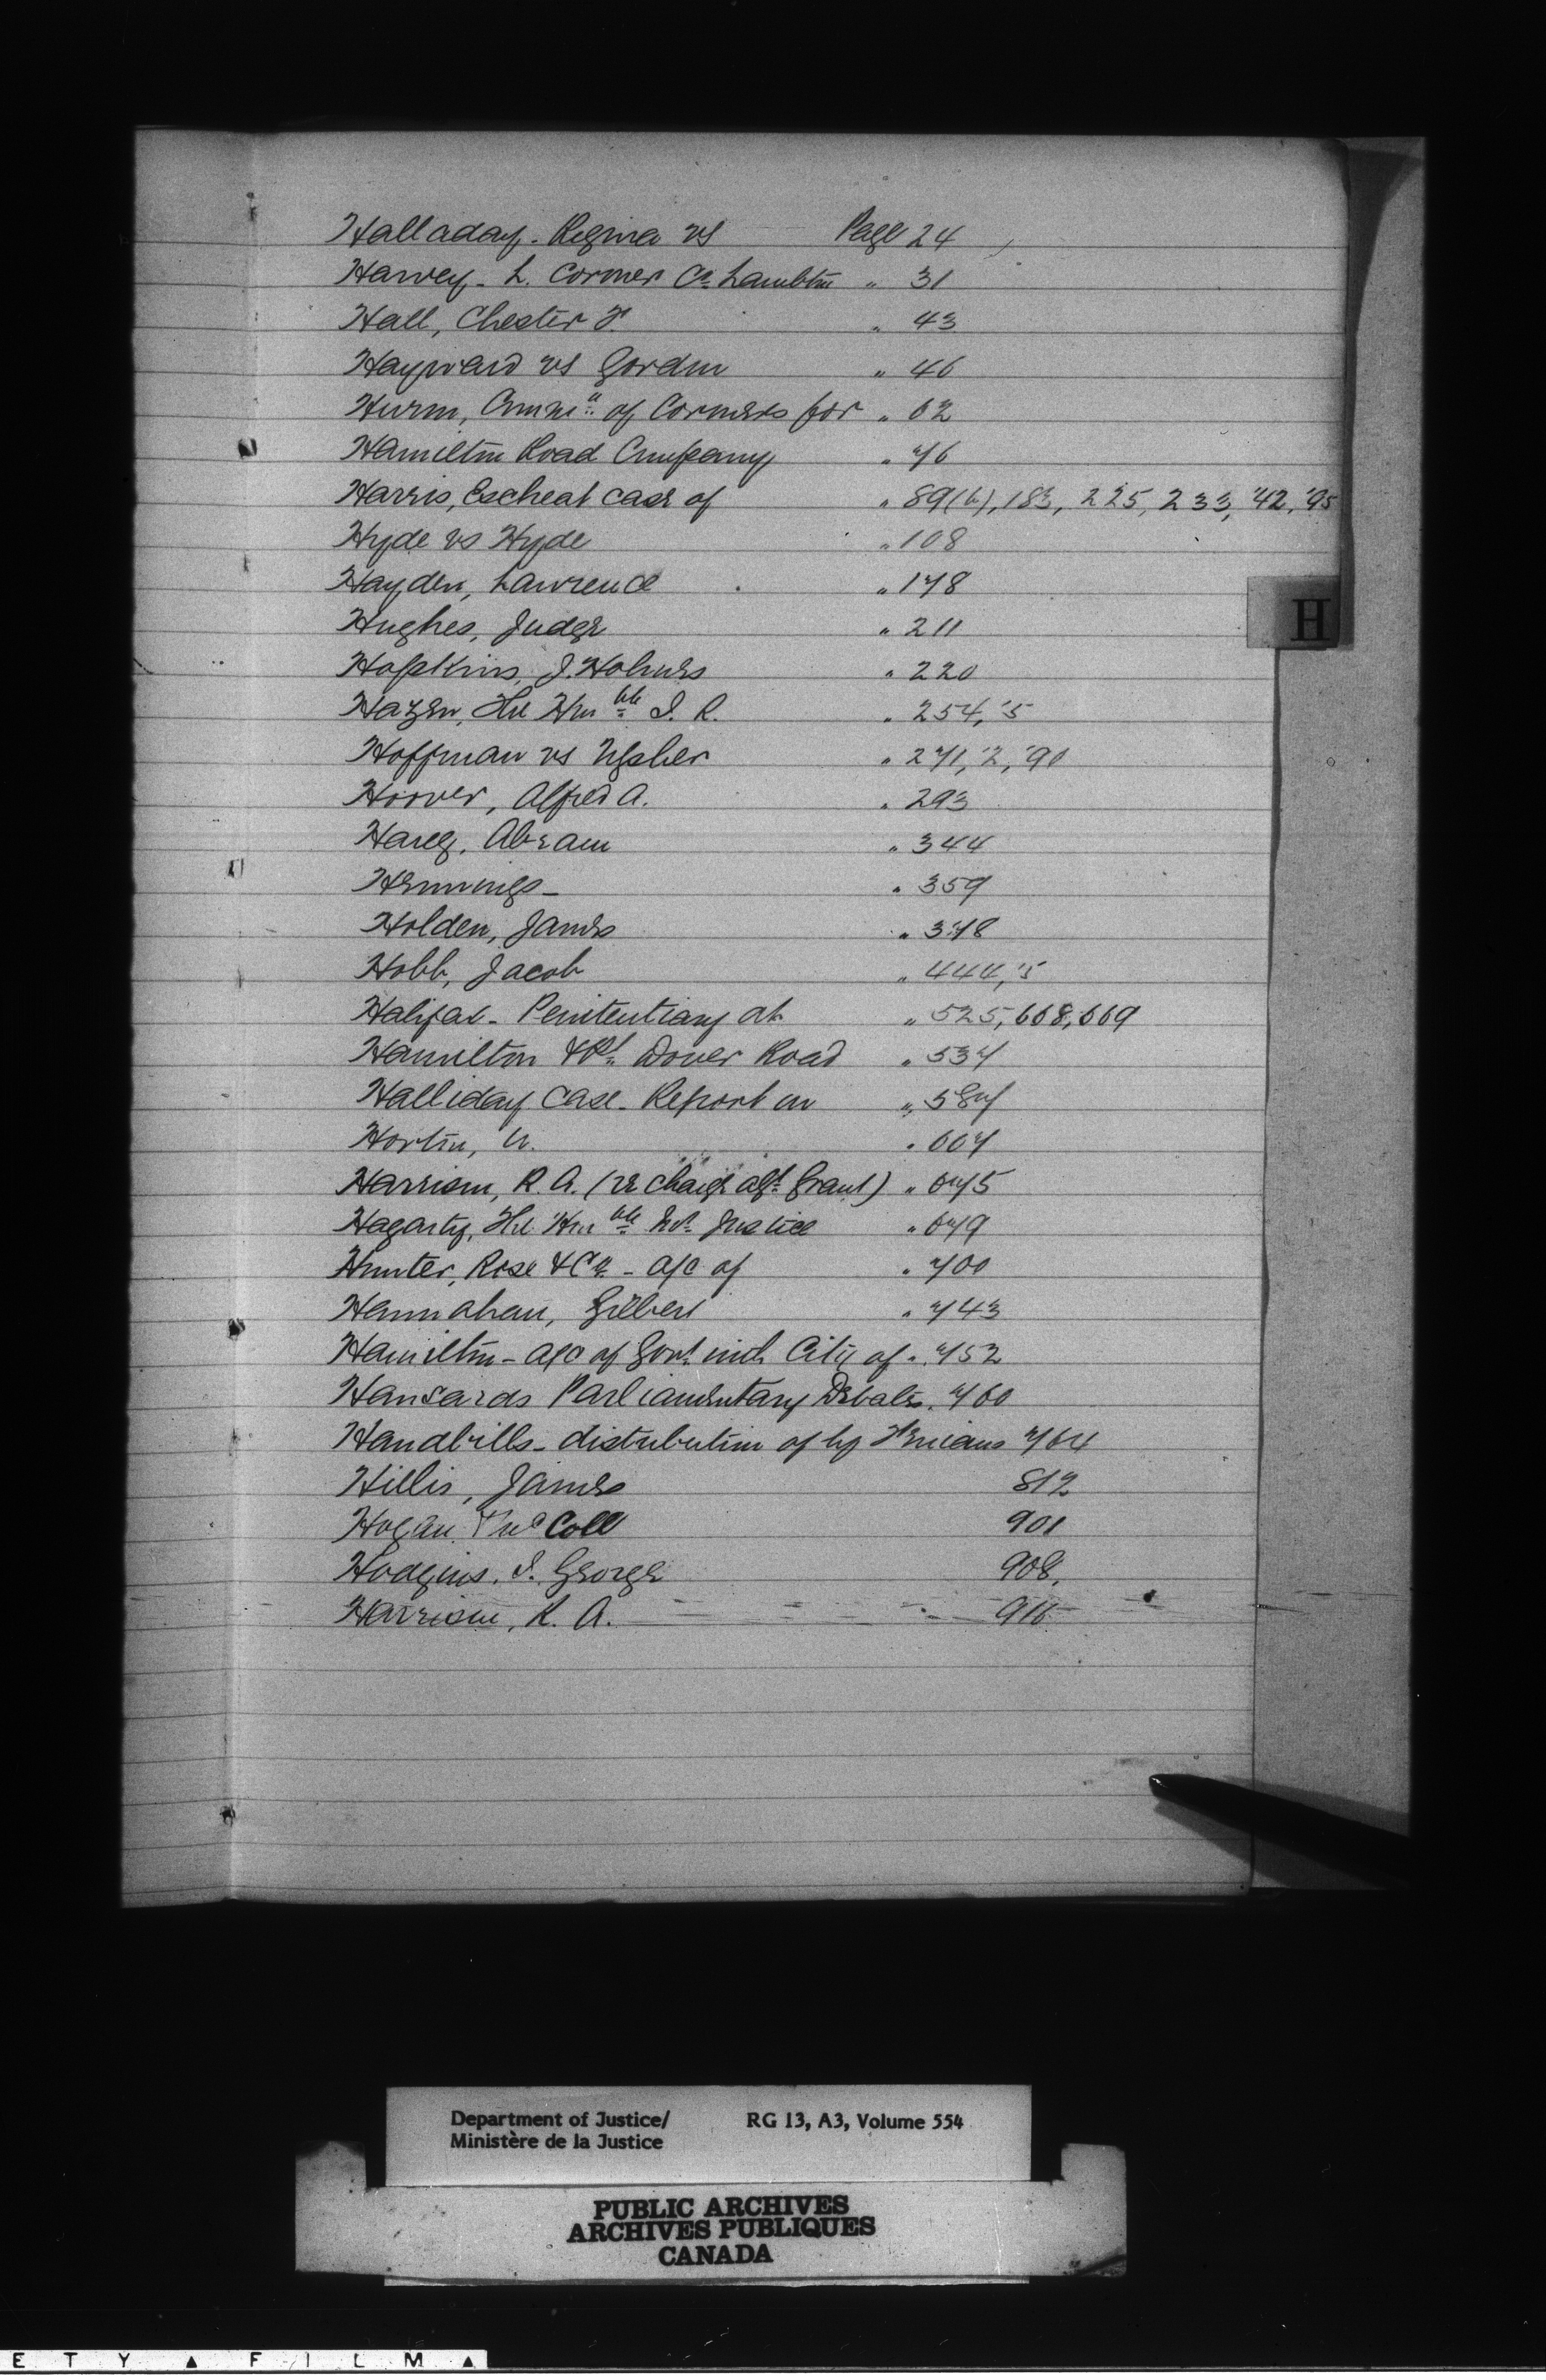 Halladay. Regina vs Page 24
Harvey - L. Coroner Co. Lambton " 31
Hall, Chester F. " 43
Hayward vs Gordon " 46
Huron, Comm:n of Coroners for " 62
Hamilton Road Company " 76
Harris, Escheat case of " 89(b), 183, 225, 233, '42, '95
Hyde vs Hyde " 108
Hayden, Lawrence " 178
Hughes, Judge " 211
Hopkins, J. Holmes " 220
Hazen, The Hon ble J. R. " 254, '5
Hoffman vs Upsher " 271, '2, '90
Hoover, Alfred A. " 293
Abram " 344
Hemmings - " 359
Holden, James " 378
Hobb, Jacob " 444, '5
Halifax - Penitentiary at " 525, 668, 669
Hamilton & Pt. Dover Road " 537
Halliday Case - Report on " 587
Horton, " 607
Harrison, R. A. (re charge agt. Grant) " 675
Hagarty, The Hon ble Mr. Justice " 679
Hunter, Rose & Co. - a/c of " 700
Hannahan, Gilbert " 743
Hamilton - a/c of Govt. with City of " 752
Hansards Parliamentary Debates. 760
Handbills - distribution of by Fenians 764
Hillis, James 812
Hogan McColl 901
Hodgins, J. George 908.
Harrison, R. A. 916
H
Department of Justice/ RG 13, A3, Volume 554
Ministère de la Justice
PUBLIC ARCHIVES
ARCHIVES PUBLIQUES
CANADA
E T Y ▲ F I L M ▲